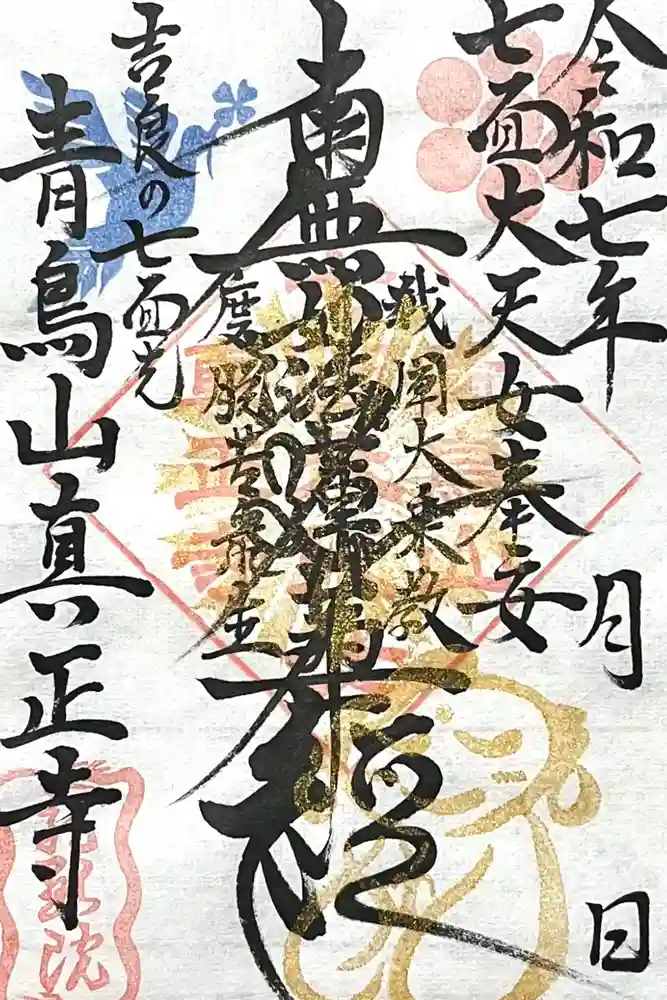 令和七年 月 日
七面大天女奉安
我闡大乗教
南無妙法蓮華経
度脱苦衆生
吉良の七面光
青鳥山真正寺